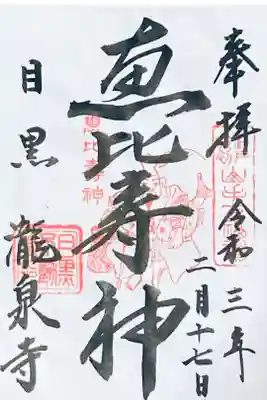 奉拝
令和三年
二月十七日
恵比寿神
恵比寿神
目黒
龍泉寺